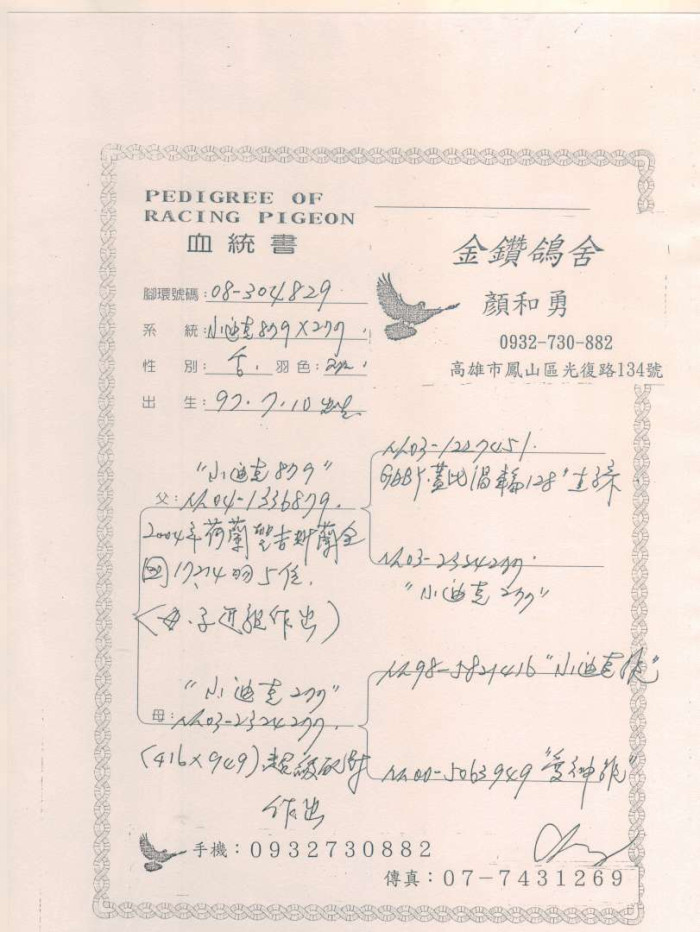 PEDIGREE OF
RACING PIGEON
血統書
金鑽鴿舍
顏和勇
0932-730-882
高雄市鳳山區光復路134號
腳環號碼：08-304829
系統：小迪克879X277
性別：舍．羽色：
出生：97.7.10
"小迪克879"
父：NL04-1336879.
2004年荷蘭聖吉斯蘭全
國17274羽5位.
(母.子近親作出)
NL03-1207451.
GABY蓋比渦輪128"直子
NL03-2324277.
"小迪克277"
"小迪克277"
母：NL03-2324277.
(416X949)超級配對
作出
NL98-5821416"小迪克"
NL00-5063949"愛神號"
手機：0932730882
傳真：07-7431269